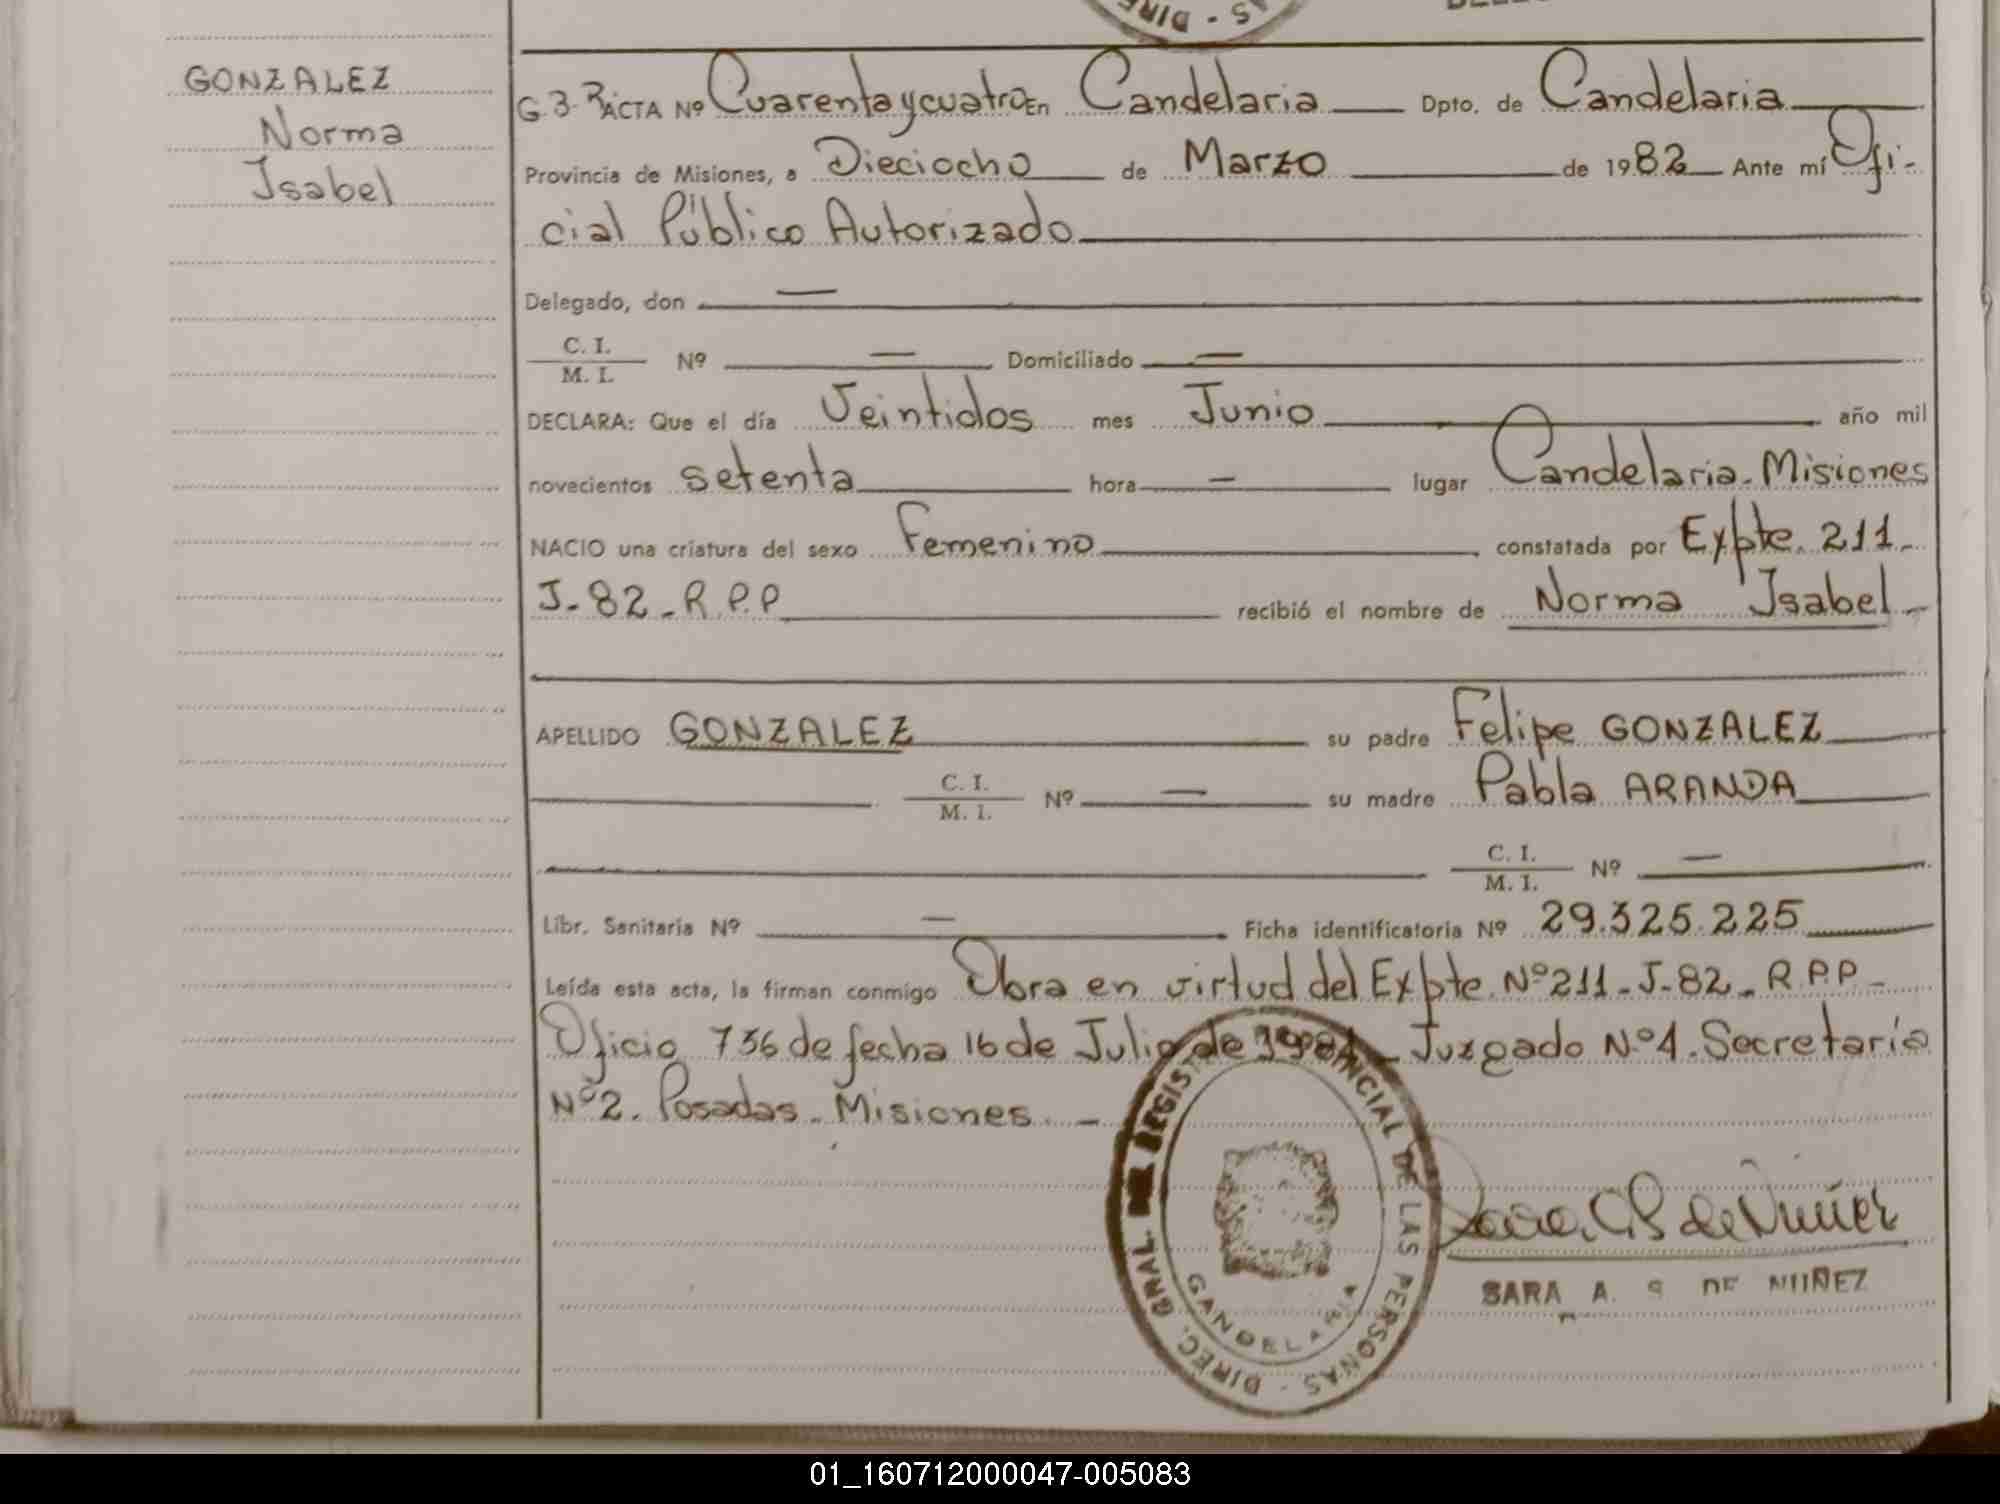 DIREC. - AS
GONZALEZ
Norma
Isabel
G. 3. ACTA Nº Cuarenta y cuatro En Candelaria Dpto. de Candelaria
Provincia de Misiones, a Dieciocho de Marzo de 1982 Ante mí Ofi-
cial Público Autorizado
Delegado, don —
C. I.
M. I. Nº — Domiciliado —
DECLARA: Que el día Veintidos mes Junio año mil
novecientos setenta hora — lugar Candelaria. Misiones
NACIO una criatura del sexo Femenino constatada por Expte. 211-
J-82-R.P.P recibió el nombre de Norma Isabel-
APELLIDO GONZALEZ su padre Felipe GONZALEZ
C. I.
M. I. Nº — su madre Pabla ARANDA
C. I.
M. I. Nº —
Libr. Sanitaria Nº — Ficha identificatoria Nº 29.325.225
Leída esta acta, la firman conmigo Obra en virtud del Expte. Nº 211-J-82-R.P.P-
Oficio 736 de fecha 16 de Julio de 1981- Juzgado Nº 1. Secretaría
Nº 2. Posadas- Misiones. -
DIREC. GRAL. DEL REGIST PROVINCIAL DE LAS PERSONAS -
CANDELARIA
SARA A. S DE NUÑEZ
01_160712000047-005083